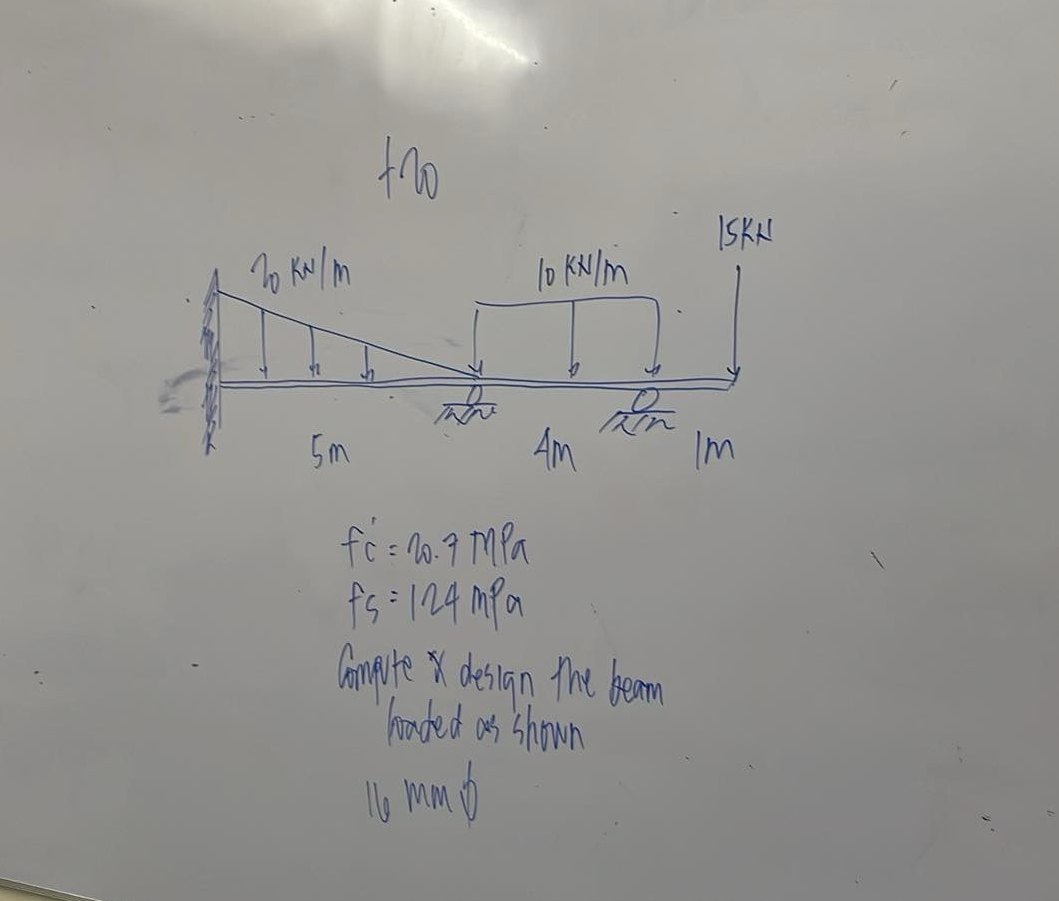 20 KN/m
10 KN/m
15KN
5m
4m
1m
fc' = 20.7 MPa
fs = 124 MPa
Compute & design the beam
loaded as shown
16 mm ϕ